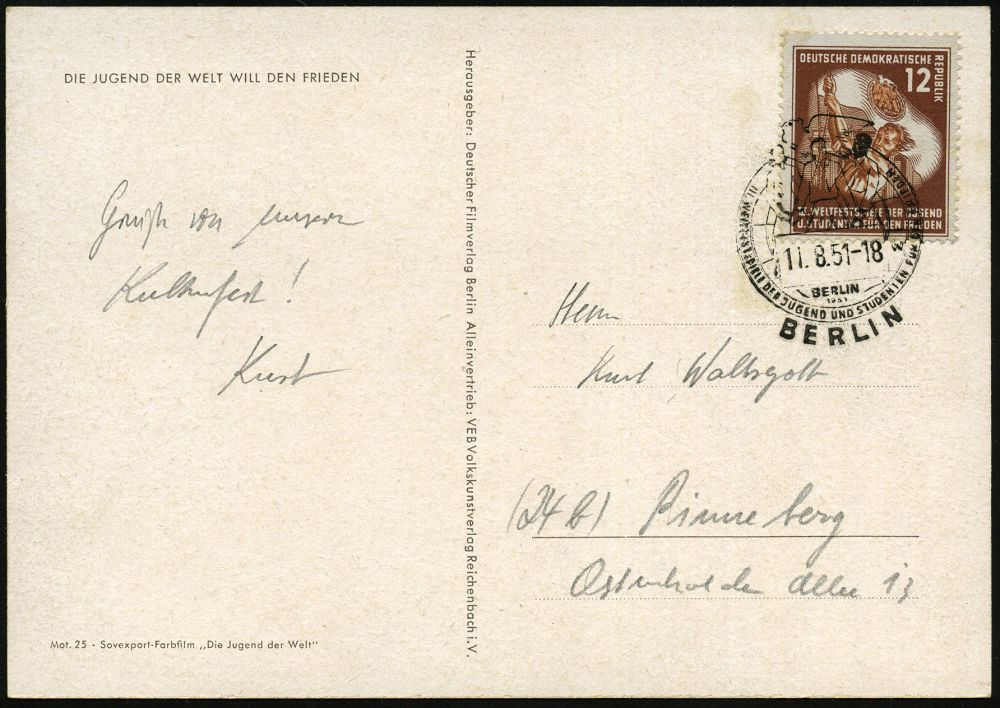 DIE JUGEND DER WELT WILL DEN FRIEDEN
von unserem
Kulturfest!
Kurt
Mot. 25 - Sovexport-Farbfilm „Die Jugend der Welt"
Herausgeber: Deutscher Filmverlag Berlin Alleinvertrieb: VEB Volkskunstverlag Reichenbach i.V.
DEUTSCHE DEMOKRATISCHE
REPUBLIK
12
III. WELTFESTSPIELE DER JUGEND
U. STUDENTEN FÜR DEN FRIEDEN
III. WELTFESTSPIELE DER JUGEND UND STUDENTEN FÜR DEN FRIEDEN
11.8.51-18
BERLIN
1951
BERLIN
Herrn
Kurt
(24 b) Pinneberg
Allee 13